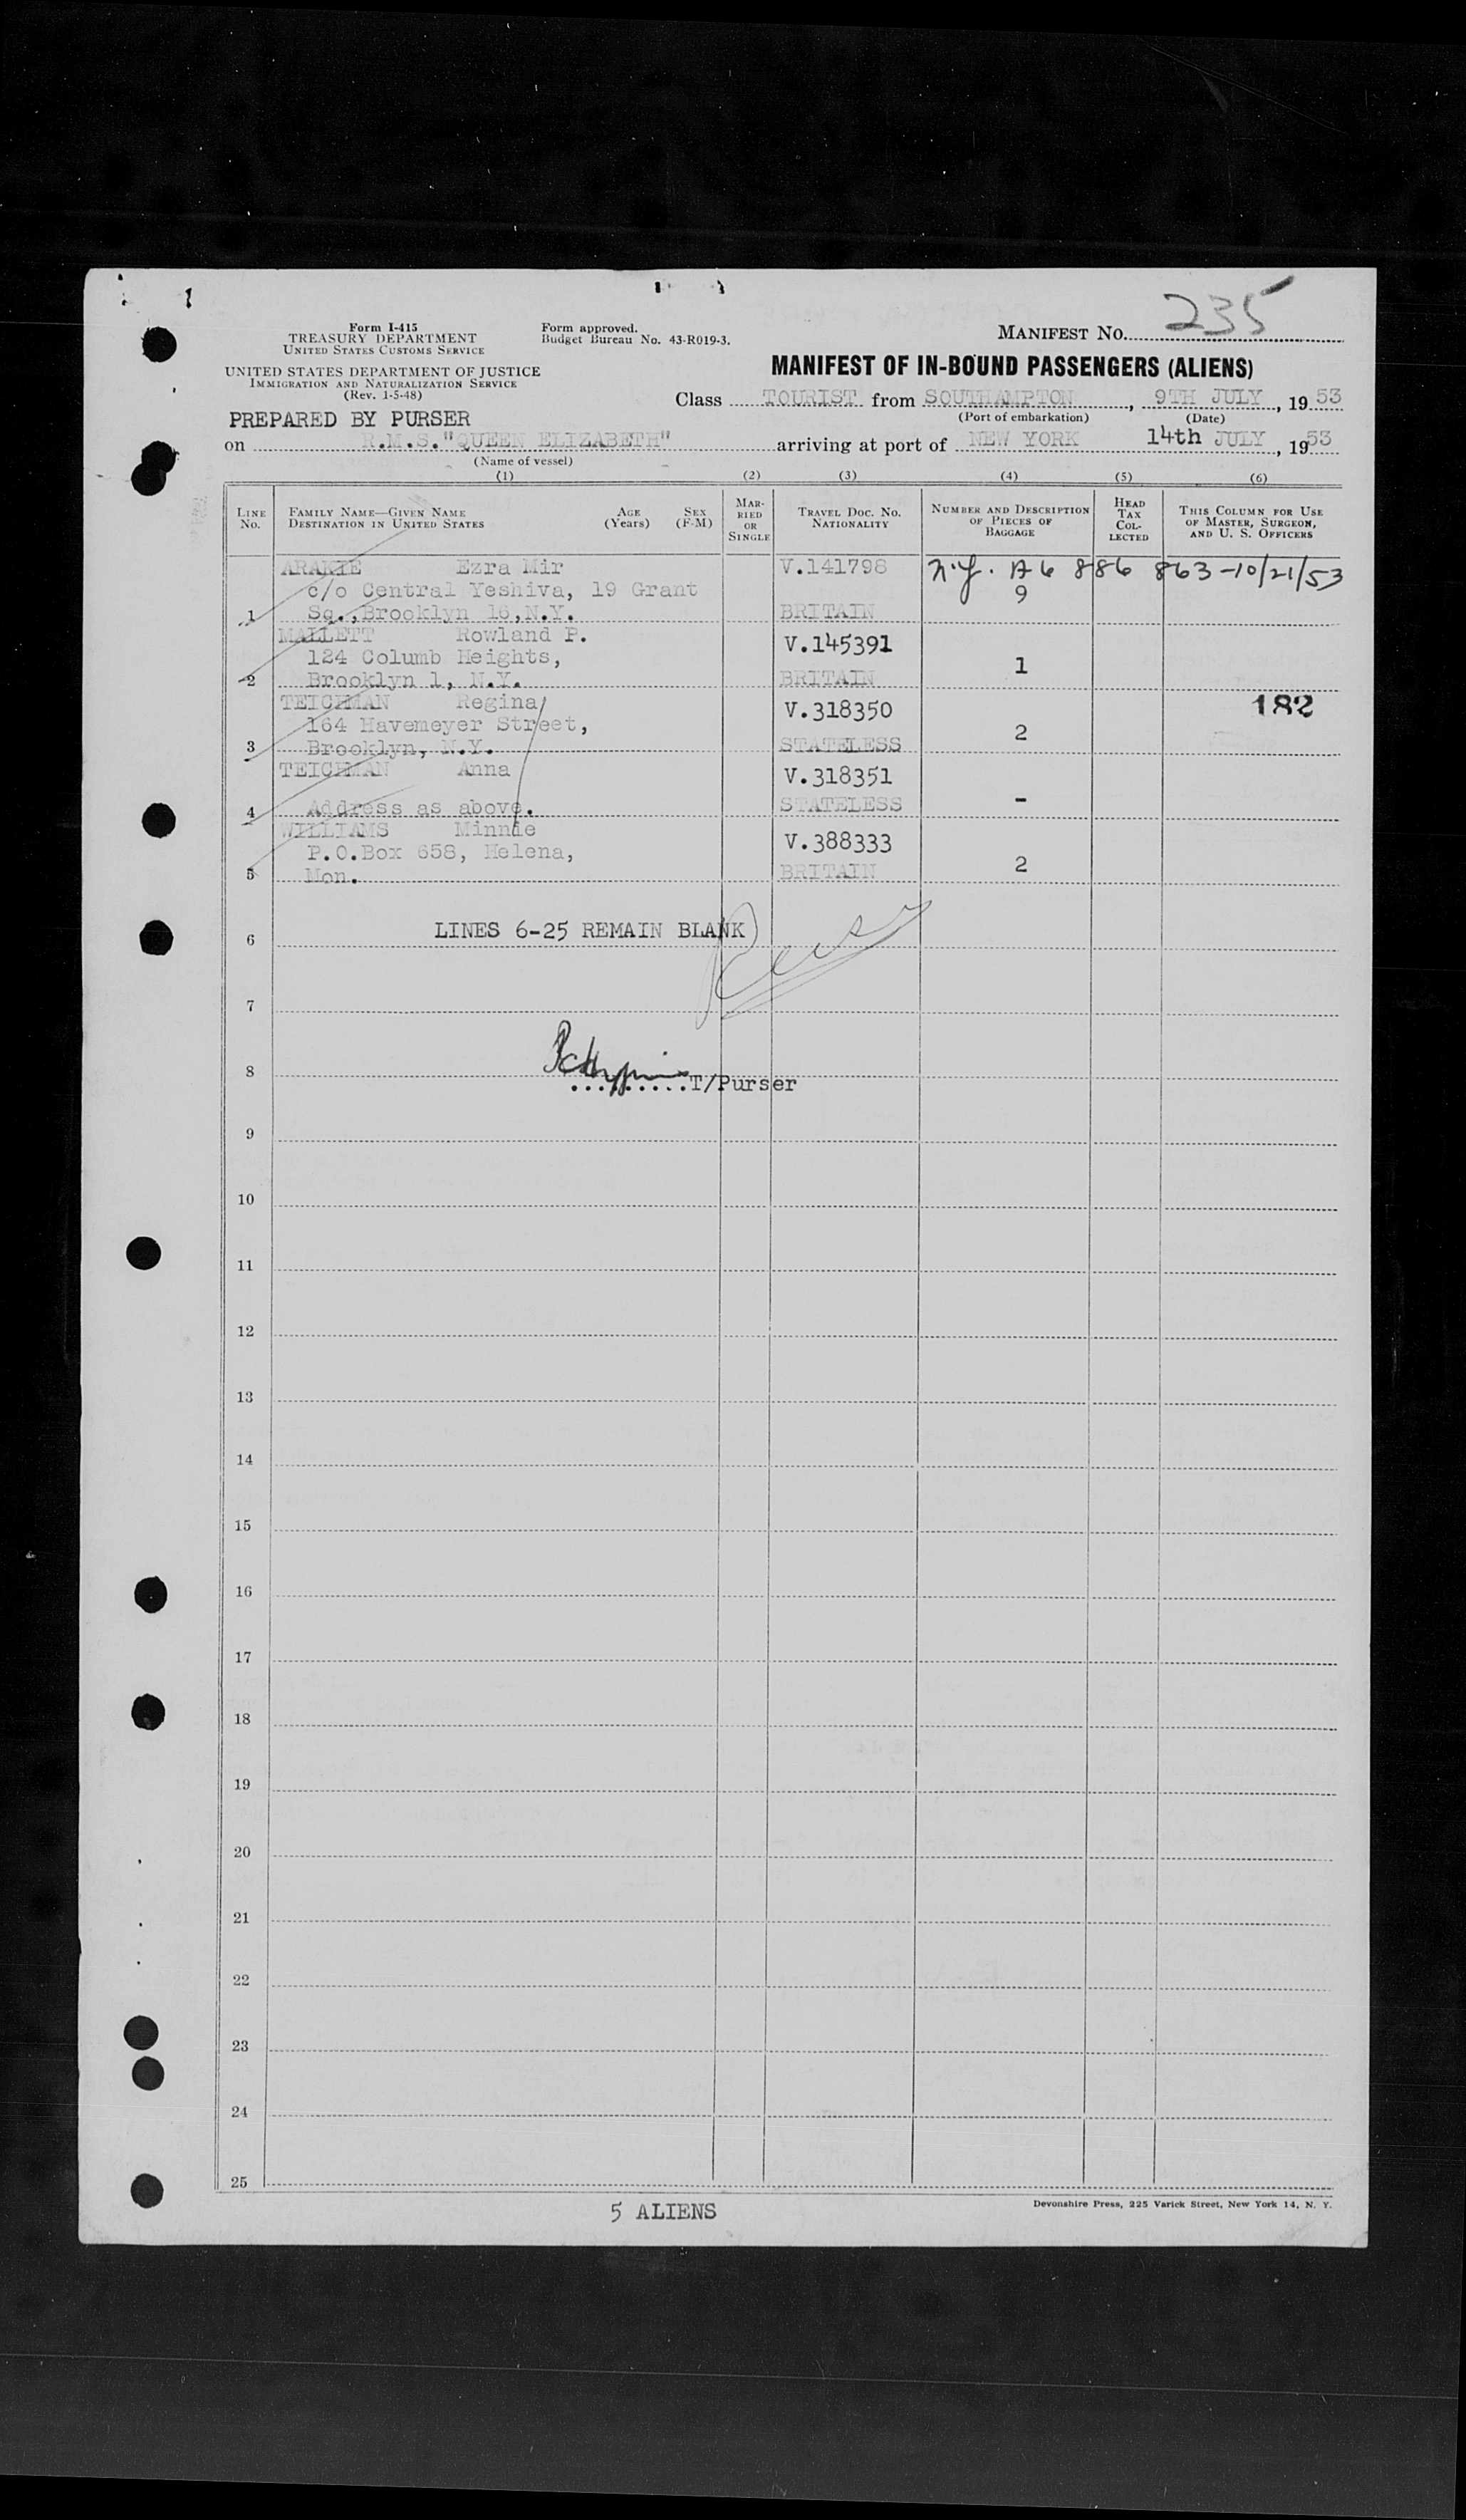 235
Form I-415
TREASURY DEPARTMENT
UNITED STATES CUSTOMS SERVICE
Form approved.
Budget Bureau No. 43-R019-3.
MANIFEST No.
UNITED STATES DEPARTMENT OF JUSTICE
IMMIGRATION AND NATURALIZATION SERVICE
(Rev. 1-5-48)
MANIFEST OF IN-BOUND PASSENGERS (ALIENS)
Class TOURIST from SOUTHAMPTON, 9TH JULY, 1953
(Port of embarkation) (Date)
PREPARED BY PURSER
on R.M.S."QUEEN ELIZABETH" arriving at port of NEW YORK 14th JULY, 1953
(Name of vessel)
(1) (2) (3) (4) (5) (6)
LINE No. FAMILY NAME—GIVEN NAME DESTINATION IN UNITED STATES AGE (Years) SEX (F-M) MARRIED OR SINGLE TRAVEL DOC. NO. NATIONALITY NUMBER AND DESCRIPTION OF PIECES OF BAGGAGE HEAD TAX COLLECTED THIS COLUMN FOR USE OF MASTER, SURGEON, AND U. S. OFFICERS
ARAKIE Ezra Mir V.141798 N.Y. A6 886 863-10/21/53
c/o Central Yeshiva, 19 Grant 9
1 Sq.,Brooklyn 16,N.Y. BRITAIN
MALLETT Rowland P. V.145391
124 Columb Heights, 1
2 Brooklyn 1, N.Y. BRITAIN
TEICHMAN Regina V.318350 182
164 Havemeyer Street, 2
3 Brooklyn, N.Y. STATELESS
TEICHMAN Anna V.318351
4 Address as above. STATELESS -
WILLIAMS Minnie V.388333
P.O.Box 658, Helena, 2
5 Mon. BRITAIN
6 LINES 6-25 REMAIN BLANK
7
8 T/Purser
9
10
11
12
13
14
15
16
17
18
19
20
21
22
23
24
25
5 ALIENS
Devonshire Press, 225 Varick Street, New York 14, N. Y.